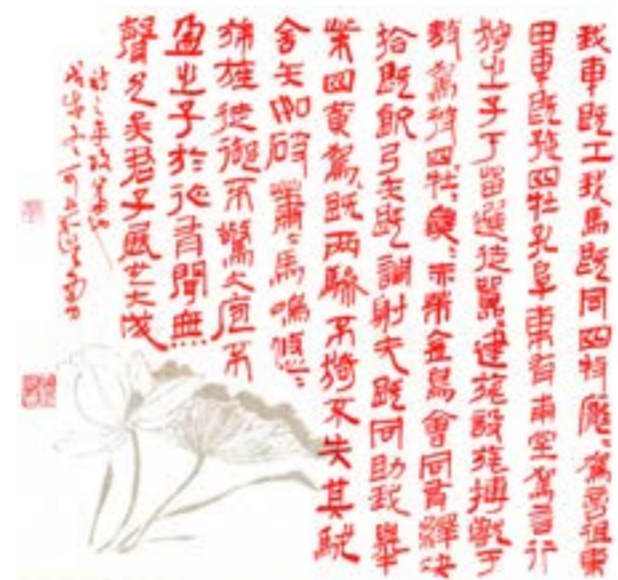 我車既工我馬既同四牡龐〻駕言徂東
田車既四牡孔阜東有甫草駕言行
狩之子于苗選徒囂〻建旐設旄搏獸于
敖駕彼四牡〻奕〻赤芾金舄會同有繹決
拾既佽弓矢既調射夫既同助我舉
柴四黃駕既兩驂不猗不失其馳
舍矢如破蕭〻馬鳴悠〻
旆旌徒御不驚大庖不
盈之子於征有聞無
聲允矣君子展也大成
詩之車攻